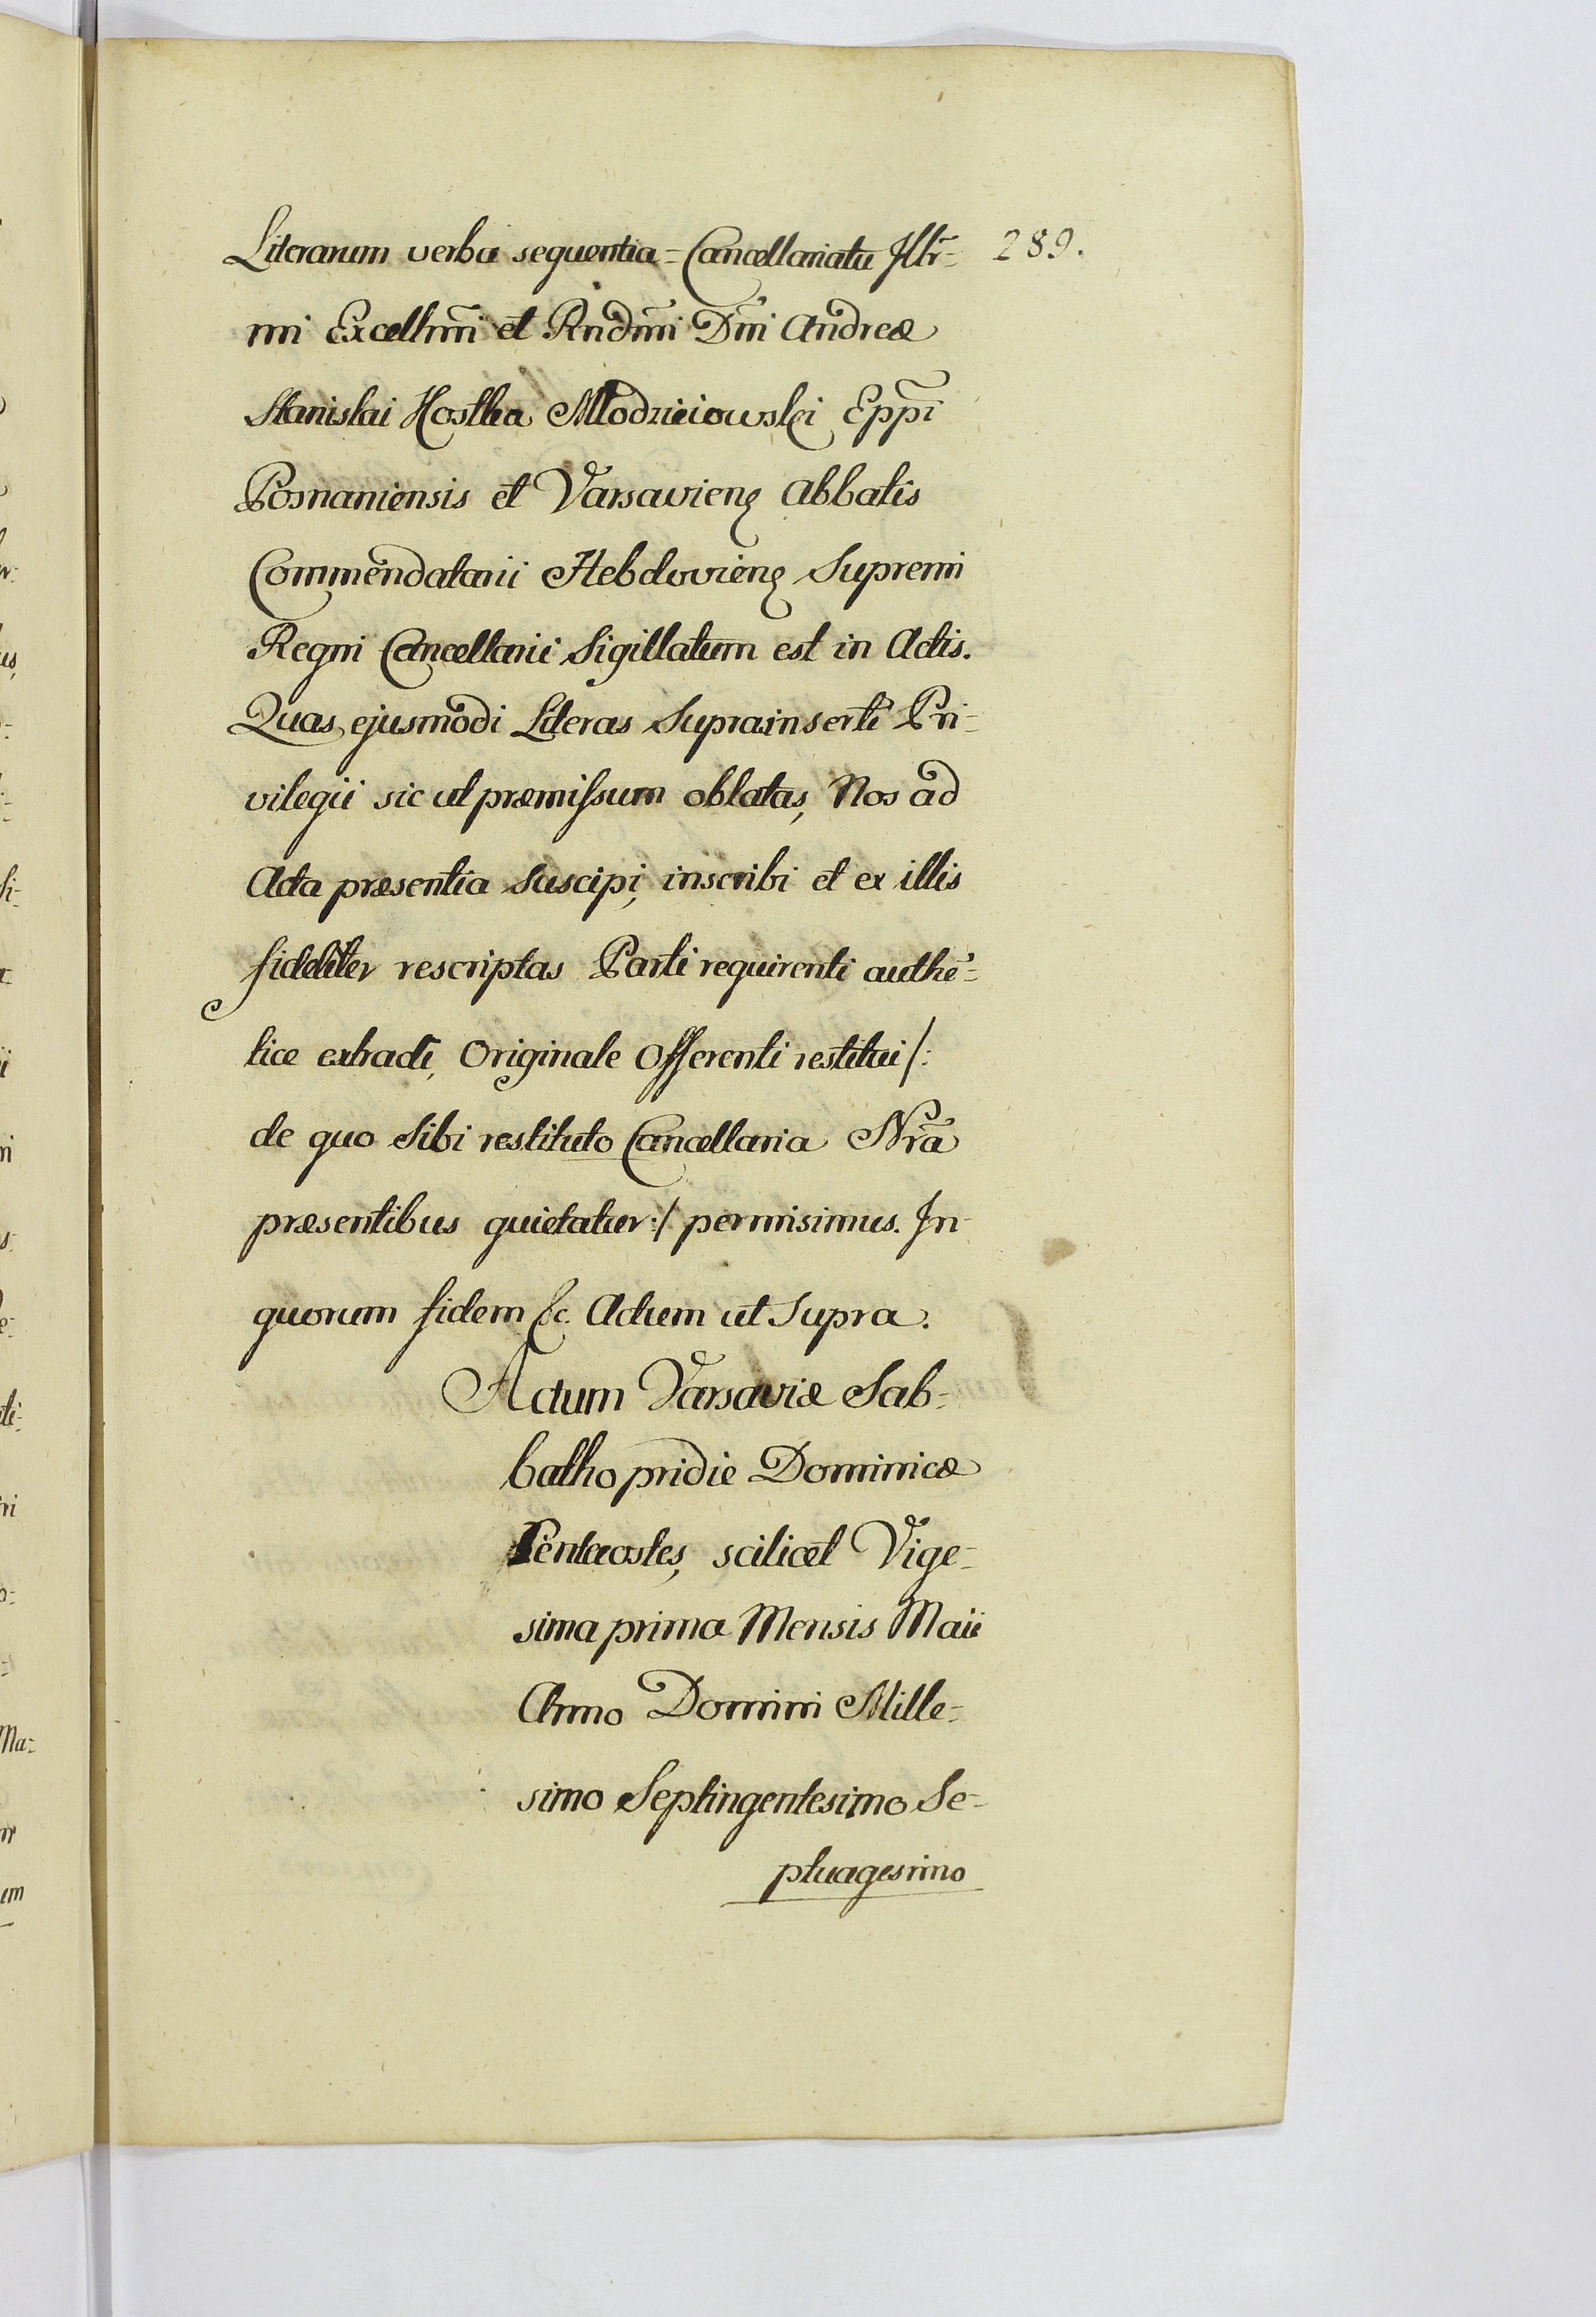 Literarum verba sequentia = Cancellariatu Jllr= 289.
mi Excellm̃i et Rndm̃i Dm̃i Andreæ
Stanislai Kostka Młodzieiowski Epp̃i
Posnaniensis et Varsavienꝫ Abbatis
Commendatarii Hebdovienꝫ Supremi
Regni Cancellarii Sigillatum est in Actis.
Quas ejusmodi Literas Suprainserti Pri-
vilegii sic ut præmiſsum oblatas, Nos ad
Acta præsentia suscipi, inscribi et ex illis
fideliter rescriptas Parti requirenti authē=
tice extradi, Originale Offerenti restitui /:
de quo Sibi restituto Cancellaria Nr̃a
præsentibus quietatur :/ permisimus. Jn
quorum fidem &c. Actum ut Supra.
Actum Varsaviæ Sab=
batho pridie Dominicæ
Pentecostes, scilicet Vige=
sima prima Mensis Maii
Anno Domini Mille=
simo Septingentesimo Se=
ptuagesimo